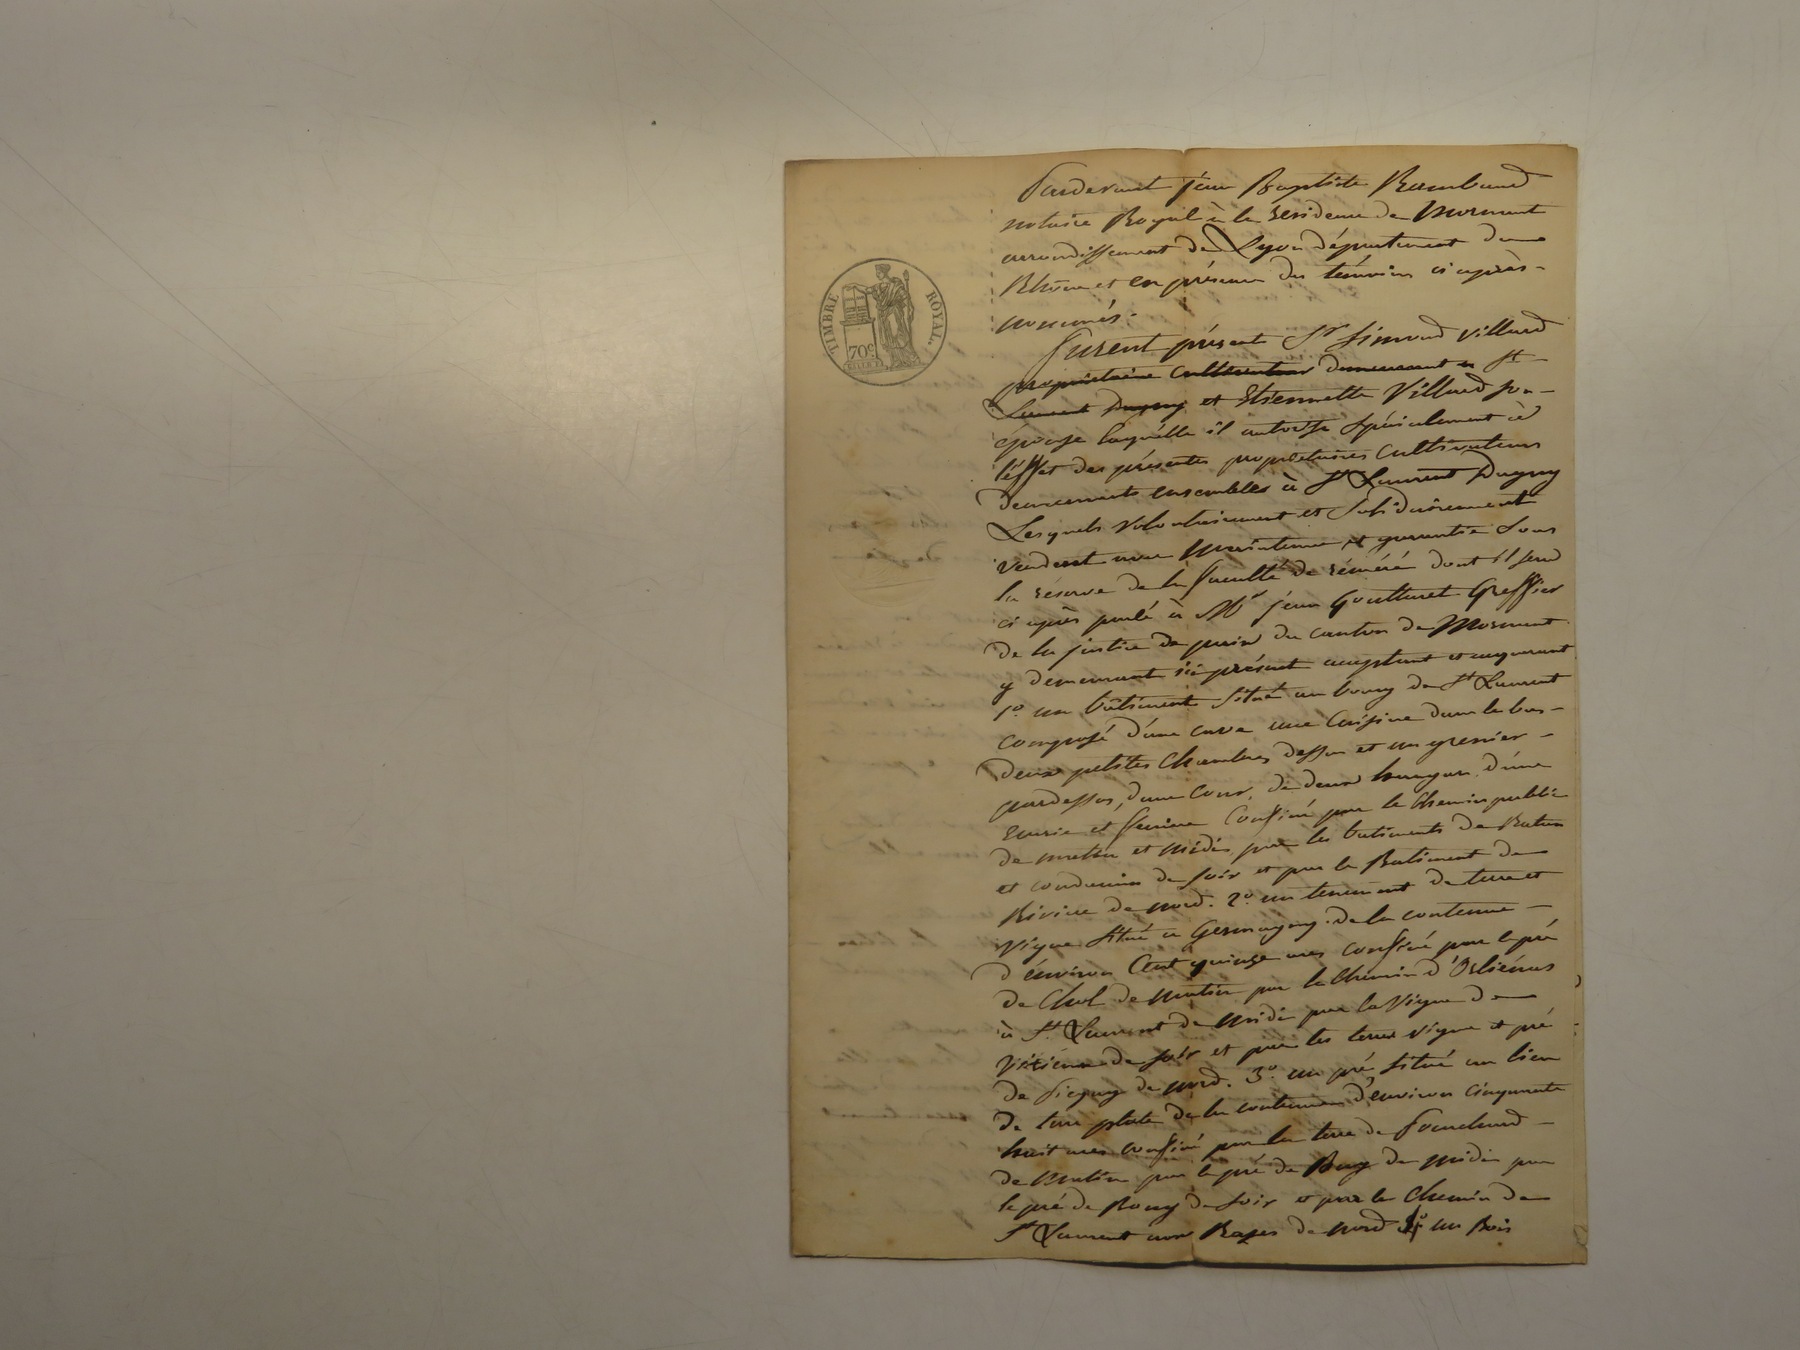 TIMBRE ROYAL.
70c
Pardevant jean Baptiste Rambaud
notaire Royal à la résidence de Mornant
arrondissement de Lyon département du
Rhône et en présence des témoins ci après
nommés.
furent présent Sr Simond Villard
propriétaire Cultivateur demeurant à St
Laurent Dagny et Etiennette Villard son
épouse laquelle il autorise Spécialement à
l'éffet des présentes propriétaires Cultivateurs
demeurants ensembles à St Laurent Dagny
Lesquels volontairement et Solidairement
vendent avec Maintenue et garantie Sous
la réserve de la faculté de réméré dont il sera
ci après parlé à Mr jean Goutturet Greffier
de la justice de paix du canton de Mornant
y demeurant ici présent acceptant et acquerant
1o un bâtiment Situé au bourg de St Laurent
composé d'une cave une Cuisine dans le bas
deux petites Chambres dessus et un grenier
pardessus, d'une Cour, de deux hangars, d'une
Ecurie et feniere Confiné par le Chemin public
de matin et midi, par les batiments de
et de Soir et par le Batiment de
Riviere de nord. 2o un tenement de terre et
Vigne Situé à Germagny de la contenue
d'énviron Cent quinze ares confiné par le pré
de Chol de matin par le Chemin d'Orliénas
à St Laurent de Midi par la Vigne de
de Soir et par les terres vigne et pré
de de nord. 3o un pré Situé au lieu
de terre plate de la contenue d'énviron cinquante
huit ares confiné par la terre de
de Matin par le pré de de Midi par
le pré de de Soir et par le Chemin de
St Laurent aux de nord 4o un Bois